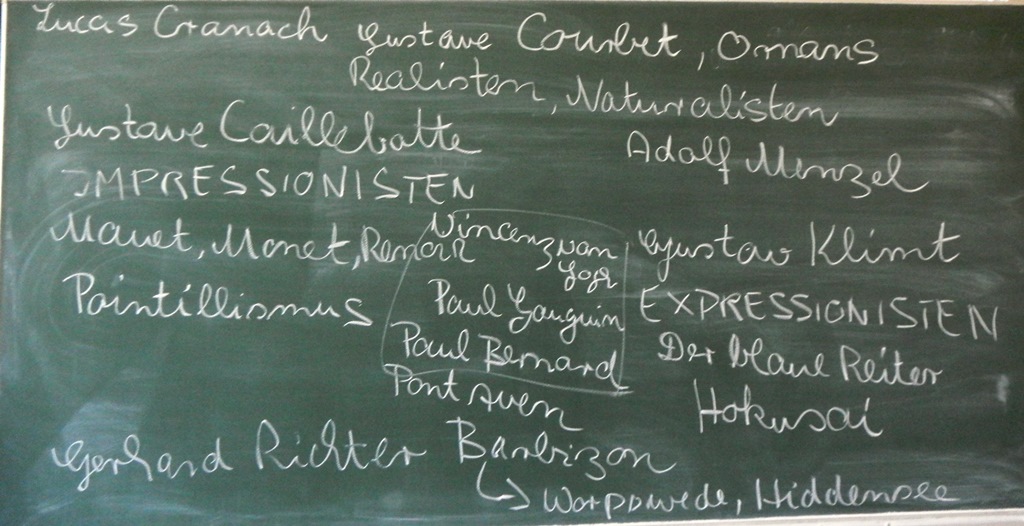 Lucas Cranach
Gustave Courbet, Ornans
Realisten, Naturalisten
Gustave Caillebotte
Adolf Menzel
IMPRESSIONISTEN
Manet, Monet, Renoir
Pointillismus
Vincenz van
Gogh
Paul Gauguin
Paul Bernard
Pont Aven
Gustav Klimt
EXPRESSIONISTEN
Der blaue Reiter
Hokusai
Gerhard Richter
Barbizon
Worpswede, Hiddensee